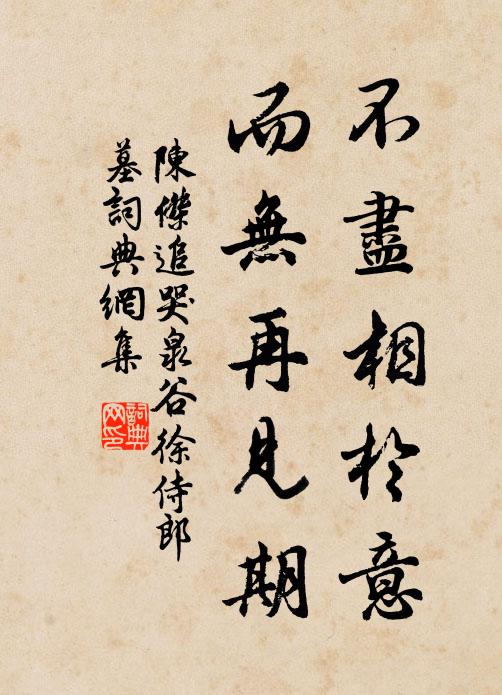 不盡相於意
而無再見期
陳傑追哭泉谷徐侍郎
墓詞典網集
詞典
网印